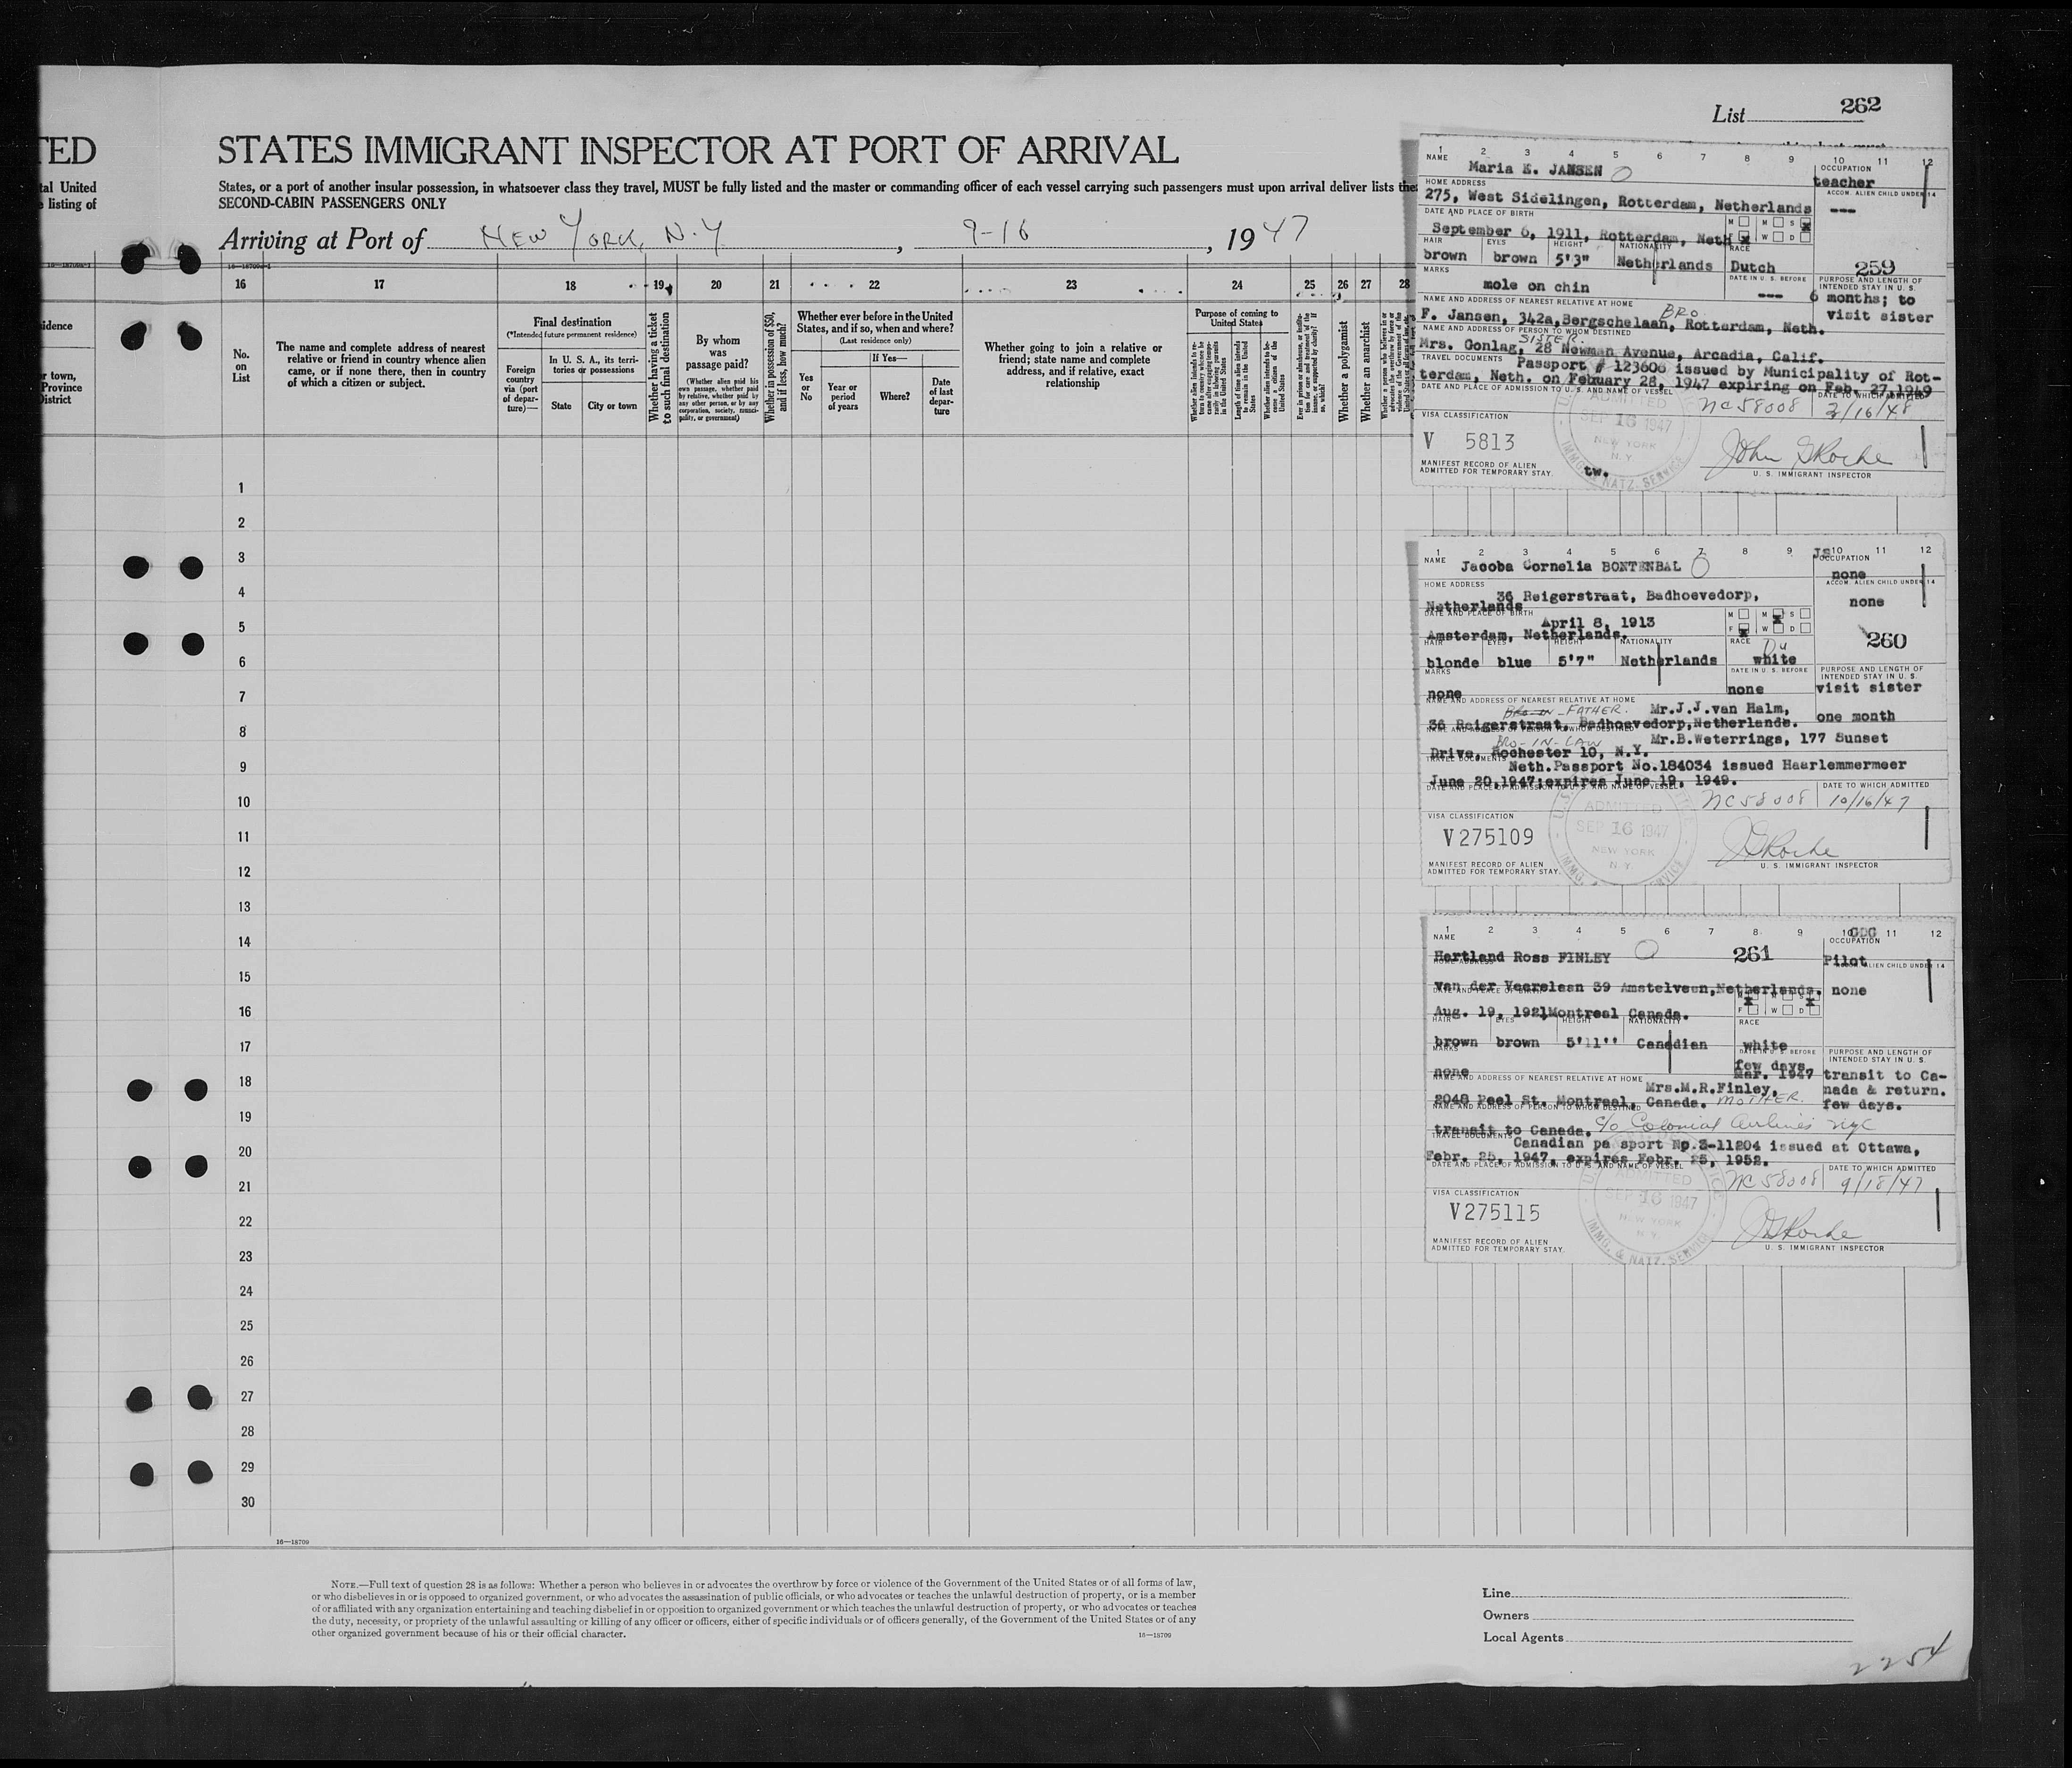 List 262
TED
STATES IMMIGRANT INSPECTOR AT PORT OF ARRIVAL
tal United
listing of
States, or a port of another insular possession, in whatsoever class they travel, MUST be fully listed and the master or commanding officer of each vessel carrying such passengers must upon arrival deliver lists
SECOND-CABIN PASSENGERS ONLY
Arriving at Port of NEW YORK, N.Y., 9-16, 1947
16 17 18 19 20 21 22 23 24 25 26 27 28
No. on List
The name and complete address of nearest
relative or friend in country whence alien
came, or if none there, then in country
of which a citizen or subject.
Final destination
(*Intended future permanent residence)
Foreign
country
via (port
of depar-
ture)—
In U. S. A., its terri-
tories or possessions
State
City or town
Whether having a ticket
to such final destination
By whom
was
passage paid?
(Whether alien paid his
own passage, whether paid
by relative, whether paid by
any other person, or by any
corporation, society, munici-
pality, or government)
Whether in possession of $50,
and if less, how much?
Whether ever before in the United
States, and if so, when and where?
(Last residence only)
Yes
or
No
If Yes—
Year or
period
of years
Where?
Date
of last
depar-
ture
Whether going to join a relative or
friend; state name and complete
address, and if relative, exact
relationship
Purpose of coming to
United States
Whether a polygamist
Whether an anarchist
idence
r town,
Province
District
1
2
3
4
5
6
7
8
9
10
11
12
13
14
15
16
17
18
19
20
21
22
23
24
25
26
27
28
29
30
16—18709
NOTE.—Full text of question 28 is as follows: Whether a person who believes in or advocates the overthrow by force or violence of the Government of the United States or of all forms of law,
or who disbelieves in or is opposed to organized government, or who advocates the assassination of public officials, or who advocates or teaches the unlawful destruction of property, or is a member
of or affiliated with any organization entertaining and teaching disbelief in or opposition to organized government or which teaches the unlawful destruction of property, or who advocates or teaches
the duty, necessity, or propriety of the unlawful assaulting or killing of any officer or officers, either of specific individuals or of officers generally, of the Government of the United States or of any
other organized government because of his or their official character.
16—18709
Line
Owners
Local Agents
2254
1 2 3 4 5 6 7 8 9 10 11 12
NAME
Maria E. JANSEN
OCCUPATION
teacher
HOME ADDRESS
275, West Sidelingen, Rotterdam, Netherlands
ACCOM. ALIEN CHILD UNDER 14
---
DATE AND PLACE OF BIRTH
September 6, 1911, Rotterdam, Neth
M M S
F W D
HAIR EYES HEIGHT NATIONALITY RACE
brown brown 5'3" Netherlands Dutch
259
MARKS
mole on chin
DATE IN U. S. BEFORE
---
PURPOSE AND LENGTH OF
INTENDED STAY IN U. S.
6 months; to
visit sister
NAME AND ADDRESS OF NEAREST RELATIVE AT HOME
BRO.
F. Jansen, 342a, Bergschelaan, Rotterdam, Neth.
NAME AND ADDRESS OF PERSON TO WHOM DESTINED
SISTER.
Mrs. Gonlag, 28 Newman Avenue, Arcadia, Calif.
TRAVEL DOCUMENTS
Passport # 123606 issued by Municipality of Rot-
terdam, Neth. on Febuary 28, 1947 expiring on Feb. 27, 1949
DATE AND PLACE OF ADMISSION TO U. S. AND NAME OF VESSEL
DATE TO WHICH ADMITTED
NC58008 3/16/48
ADMITTED
SEP 16 1947
NEW YORK
N. Y.
IMMG. & NATZ. SERVICE
VISA CLASSIFICATION
V 5813
MANIFEST RECORD OF ALIEN
ADMITTED FOR TEMPORARY STAY.
tw.
U. S. IMMIGRANT INSPECTOR
1 2 3 4 5 6 7 8 9 10 11 12
NAME
Jacoba Cornelia BONTENBAL
OCCUPATION
none
HOME ADDRESS
36 Reigerstraat, Badhoevedorp,
Netherlands
ACCOM. ALIEN CHILD UNDER 14
none
DATE AND PLACE OF BIRTH
April 8, 1913
Amsterdam, Netherlands.
M M S
F W D
260
HAIR EYES HEIGHT NATIONALITY RACE
Du
blonde blue 5'7" Netherlands white
MARKS
none
DATE IN U. S. BEFORE
none
PURPOSE AND LENGTH OF
INTENDED STAY IN U. S.
visit sister
one month
NAME AND ADDRESS OF NEAREST RELATIVE AT HOME
BRO-IN- FATHER. Mr.J.J.van Halm,
36 Reigerstraat, Badhoevedorp,Netherlands.
NAME AND ADDRESS OF PERSON TO WHOM DESTINED
BRO-IN-LAW Mr.B.Weterrings, 177 Sunset
Drive, Rochester 10, N.Y.
TRAVEL DOCUMENTS
Neth.Passport No.184034 issued Haarlemmermeer
June 20,1947;expires June 19, 1949.
DATE AND PLACE OF ADMISSION TO U. S. AND NAME OF VESSEL
DATE TO WHICH ADMITTED
NC58008 10/16/47
ADMITTED
SEP 16 1947
NEW YORK
N. Y.
VISA CLASSIFICATION
V275109
MANIFEST RECORD OF ALIEN
ADMITTED FOR TEMPORARY STAY.
U. S. IMMIGRANT INSPECTOR
1 2 3 4 5 6 7 8 9 10 11 12
NAME
Hartland Ross FINLEY
261
OCCUPATION
Pilot
HOME ADDRESS
van der Veerelaan 39 Amstelveen,Netherlands.
ACCOM. ALIEN CHILD UNDER 14
none
DATE AND PLACE OF BIRTH
Aug. 19, 1921 Montreal Canada.
F W D
HAIR EYES HEIGHT NATIONALITY RACE
brown brown 5'11'' Canadian white
MARKS
none
DATE IN U. S. BEFORE
few days
Mar. 1947
PURPOSE AND LENGTH OF
INTENDED STAY IN U. S.
transit to Ca-
nada & return.
few days.
NAME AND ADDRESS OF NEAREST RELATIVE AT HOME
Mrs.M.R.Finley,
2048 Peel St. Montreal, Canada. MOTHER.
NAME AND ADDRESS OF PERSON TO WHOM DESTINED
transit to Canada. c/o Colonial Airlines NYC
TRAVEL DOCUMENTS
Canadian pa sport No.3-11204 issued at Ottawa,
Febr. 25, 1947, expires Febr. 25, 1952.
DATE AND PLACE OF ADMISSION TO U. S. AND NAME OF VESSEL
DATE TO WHICH ADMITTED
NC58008 9/18/47
ADMITTED
SEP 16 1947
NEW YORK
N. Y.
IMMG. & NATZ. SERVICE
VISA CLASSIFICATION
V275115
MANIFEST RECORD OF ALIEN
ADMITTED FOR TEMPORARY STAY.
U. S. IMMIGRANT INSPECTOR